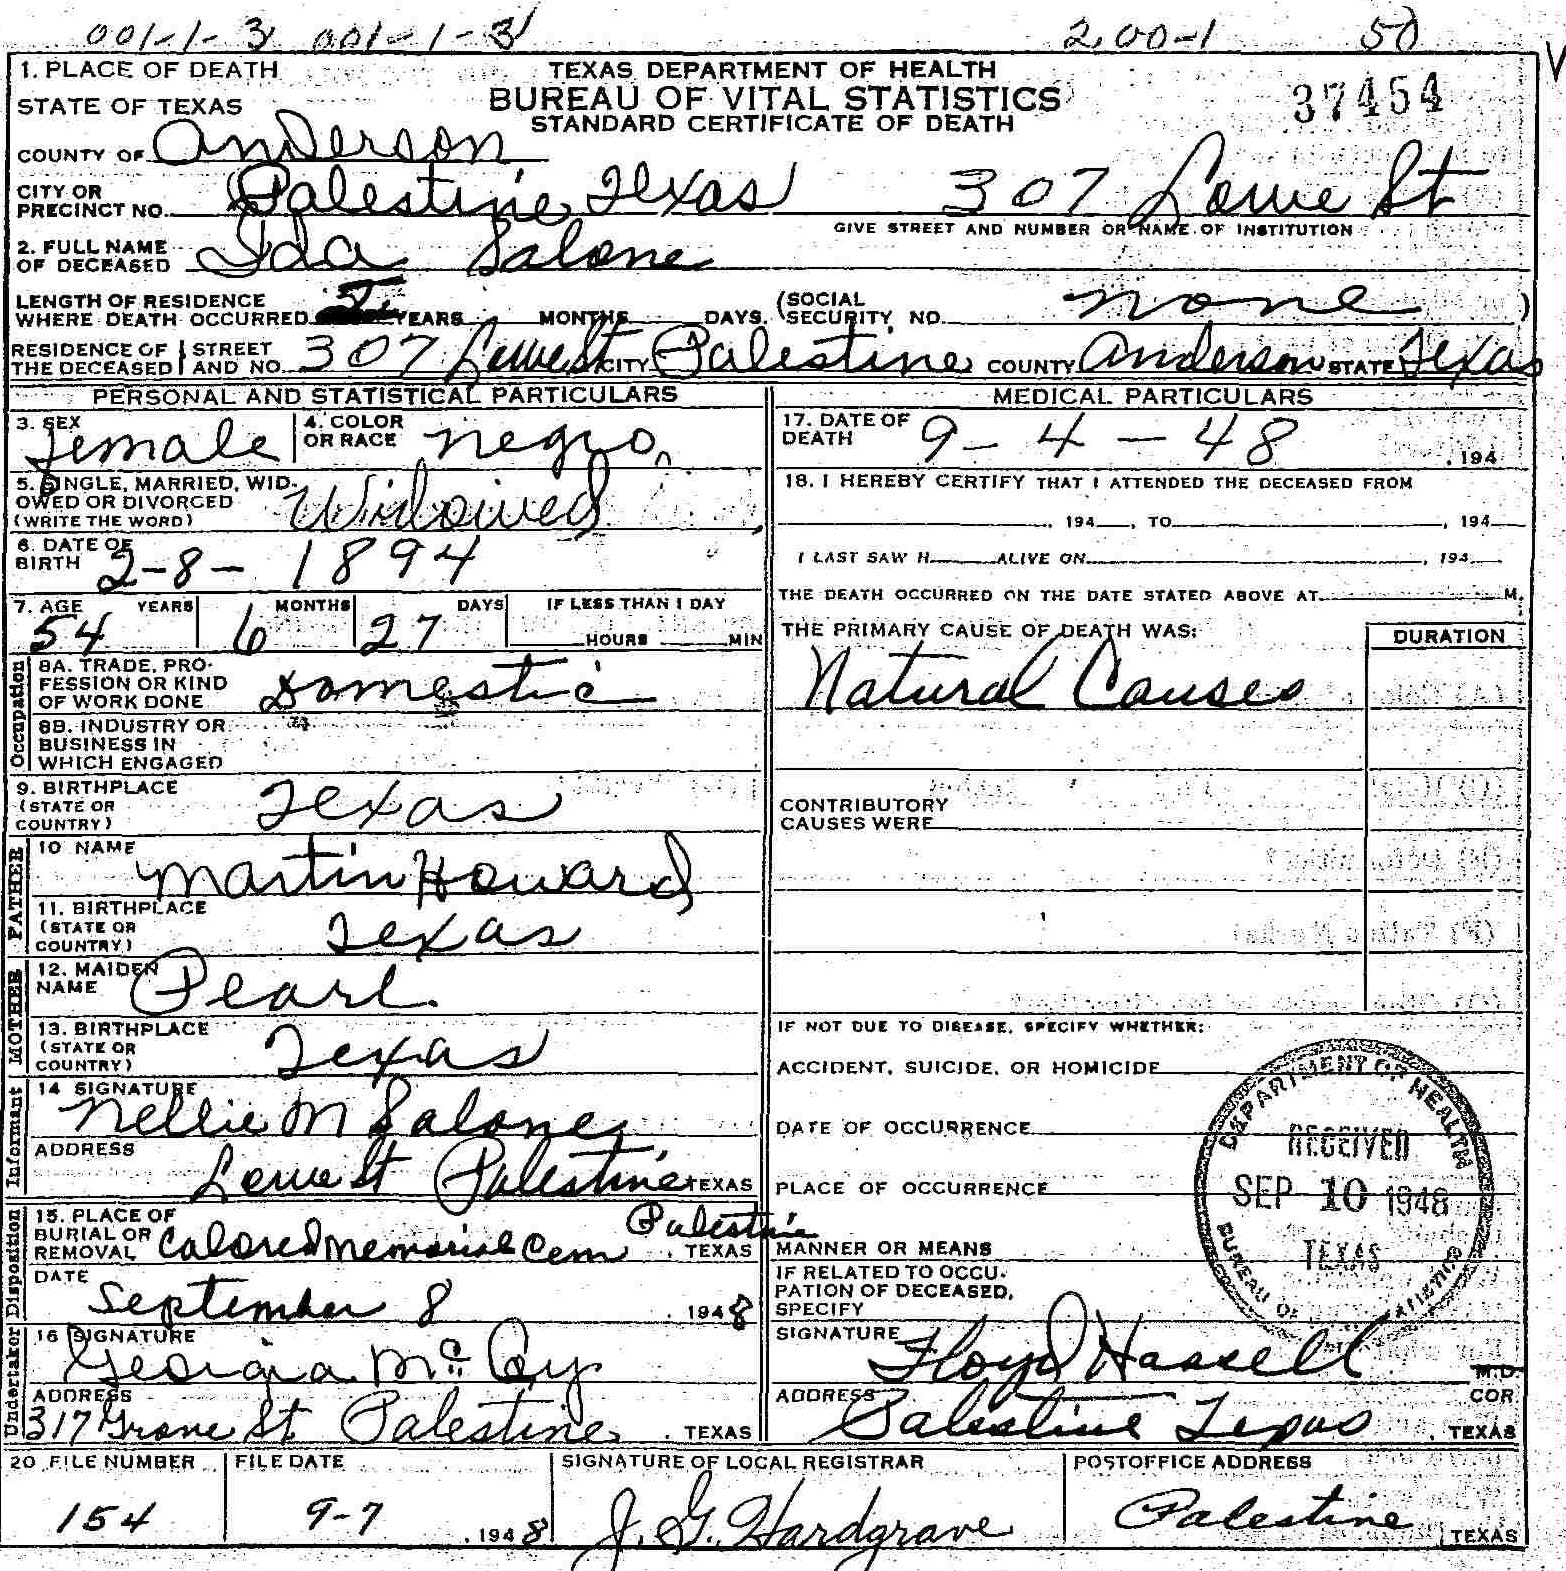 001-1-3 001-1-3 200-1 50
V
1. PLACE OF DEATH TEXAS DEPARTMENT OF HEALTH
STATE OF TEXAS BUREAU OF VITAL STATISTICS 37454
STANDARD CERTIFICATE OF DEATH
COUNTY OF Anderson
CITY OR PRECINCT NO. Palestine Texas 307 Lowe St
GIVE STREET AND NUMBER OR NAME OF INSTITUTION
2. FULL NAME OF DECEASED Ida Salone
LENGTH OF RESIDENCE WHERE DEATH OCCURRED YEARS MONTHS DAYS. (SOCIAL SECURITY NO. none )
RESIDENCE OF THE DECEASED STREET AND NO. 307 Lowe St CITY Palestine COUNTY Anderson STATE Texas
PERSONAL AND STATISTICAL PARTICULARS
3. SEX female 4. COLOR OR RACE negro
5. SINGLE, MARRIED, WIDOWED OR DIVORCED (WRITE THE WORD) Widowed
6. DATE OF BIRTH 2-8-1894
7. AGE YEARS MONTHS DAYS IF LESS THAN 1 DAY
54 6 27 HOURS MIN
Occupation
8A. TRADE, PROFESSION OR KIND OF WORK DONE Domestic
8B. INDUSTRY OR BUSINESS IN WHICH ENGAGED
9. BIRTHPLACE (STATE OR COUNTRY) Texas
FATHER
10 NAME Martin Howard
11. BIRTHPLACE (STATE OR COUNTRY) Texas
MOTHER
12. MAIDEN NAME Pearl
13. BIRTHPLACE (STATE OR COUNTRY) Texas
Informant
14 SIGNATURE Nellie M Salone
ADDRESS Lowe St Palestine TEXAS
Disposition
15. PLACE OF BURIAL OR REMOVAL Colored Memorial Cem Palestine, TEXAS
DATE September 8, 1948
Undertaker
16 SIGNATURE Georgia McCoy
ADDRESS 317 Grove St Palestine, TEXAS
MEDICAL PARTICULARS
17. DATE OF DEATH 9-4-48, 194
18. I HEREBY CERTIFY THAT I ATTENDED THE DECEASED FROM
, 194 , TO , 194
I LAST SAW H ALIVE ON , 194
THE DEATH OCCURRED ON THE DATE STATED ABOVE AT M.
THE PRIMARY CAUSE OF DEATH WAS: DURATION
Natural Causes
CONTRIBUTORY CAUSES WERE
IF NOT DUE TO DISEASE, SPECIFY WHETHER:
ACCIDENT, SUICIDE, OR HOMICIDE
DATE OF OCCURRENCE
PLACE OF OCCURRENCE
MANNER OR MEANS
IF RELATED TO OCCUPATION OF DECEASED, SPECIFY
DEPARTMENT OF HEALTH
RECEIVED
SEP 10 1948
TEXAS
BUREAU OF
SIGNATURE Floyd Hassell M.D.
COR
ADDRESS Palestine Texas, TEXAS
20 FILE NUMBER FILE DATE SIGNATURE OF LOCAL REGISTRAR POSTOFFICE ADDRESS
154 9-7, 1948 J. G. Hardgrave Palestine, TEXAS